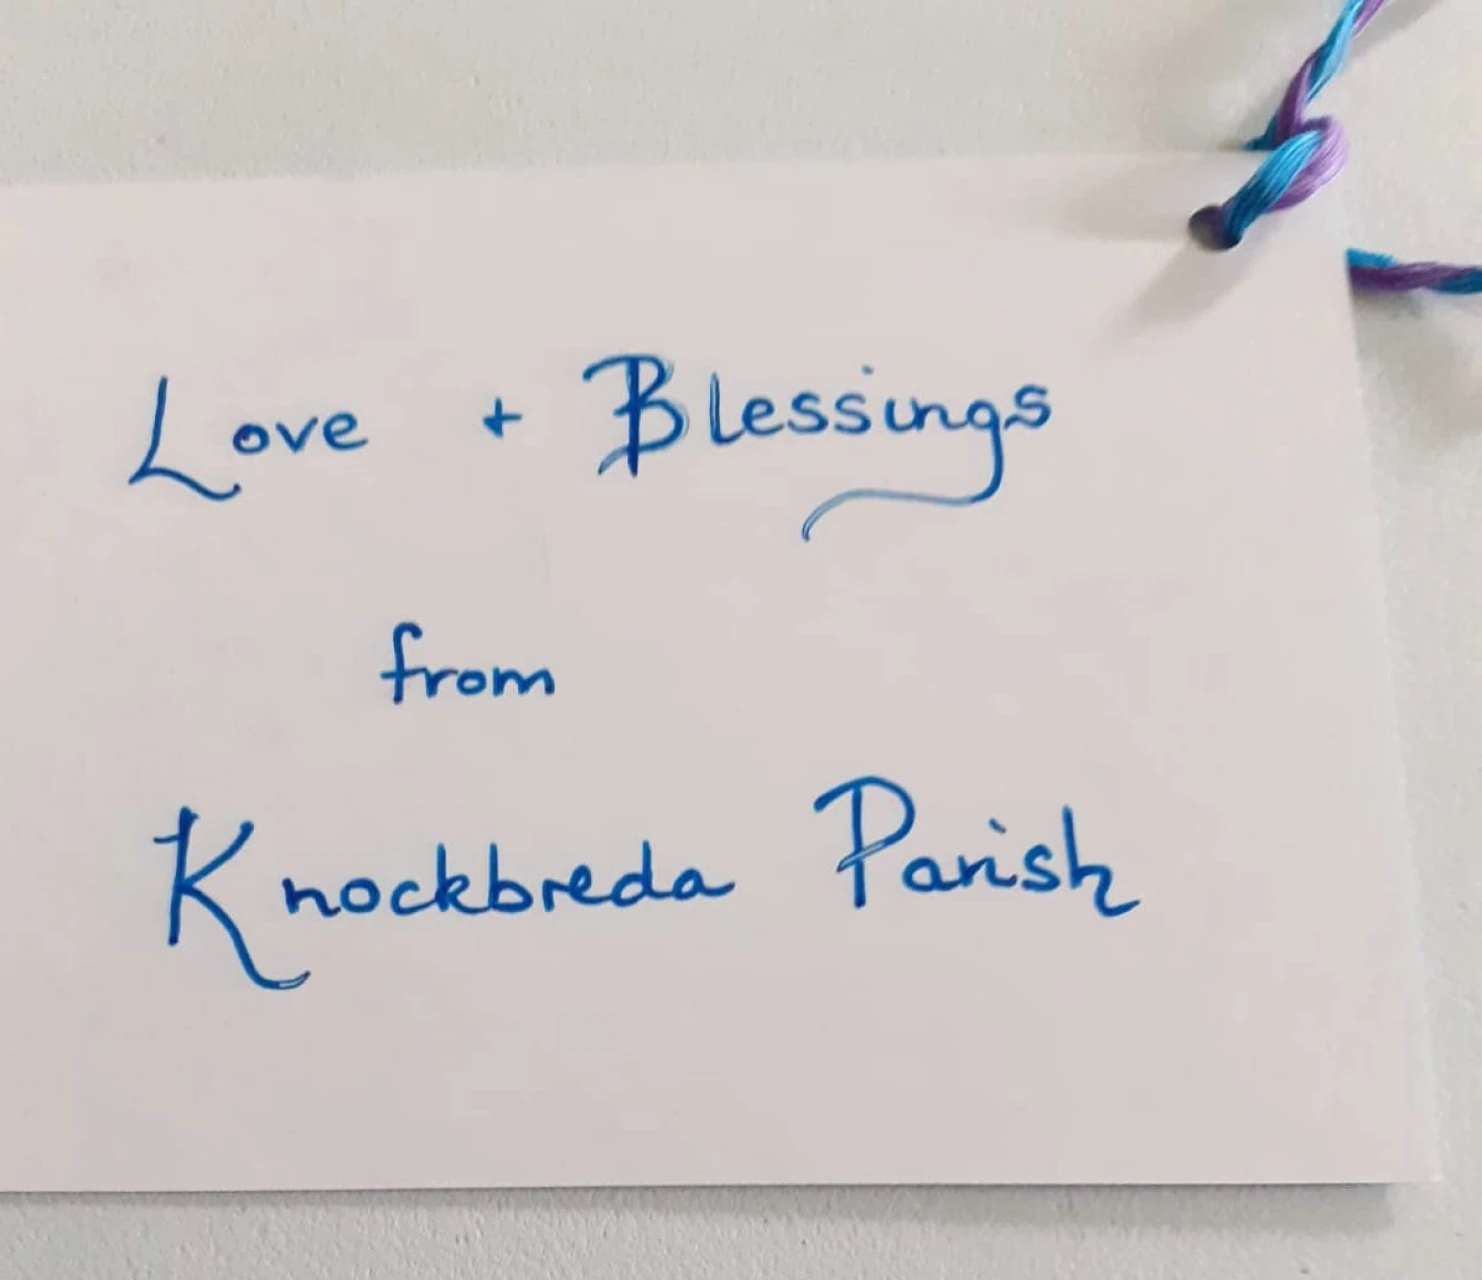 Love + Blessings
from
Knockbreda Parish